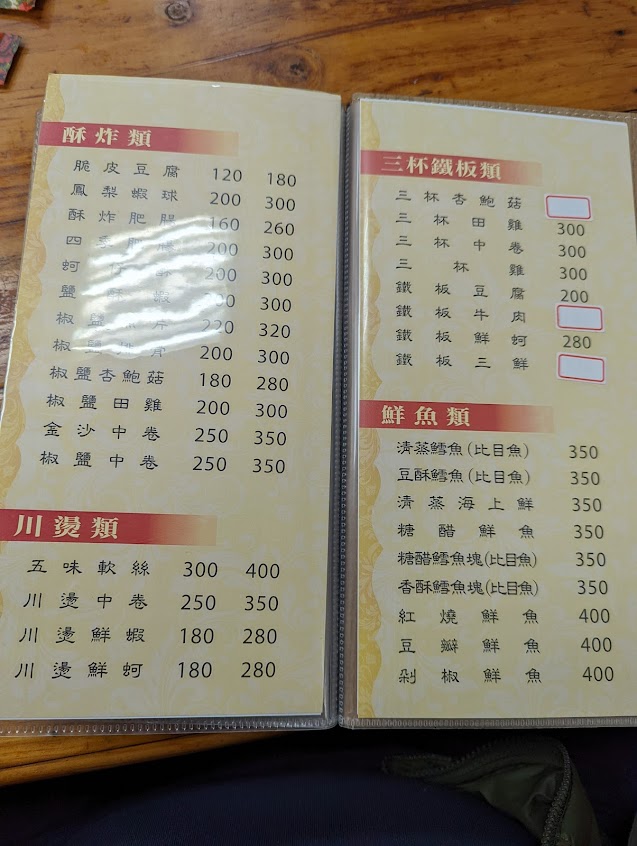 酥炸類
脆皮豆腐 120 180
鳳梨蝦球 200 300
酥炸肥腸 160 260
四季肥腸 200 300
蚵仔酥 200 300
鹽酥蝦 300
椒鹽魚片 220 320
椒鹽排骨 200 300
椒鹽杏鮑菇 180 280
椒鹽田雞 200 300
金沙中卷 250 350
椒鹽中卷 250 350
川燙類
五味軟絲 300 400
川燙中卷 250 350
川燙鮮蝦 180 280
川燙鮮蚵 180 280
三杯鐵板類
三杯杏鮑菇
三杯田雞 300
三杯中卷 300
三杯雞 300
鐵板豆腐 200
鐵板牛肉
鐵板鮮蚵 280
鐵板三鮮
鮮魚類
清蒸鱈魚(比目魚) 350
豆酥鱈魚(比目魚) 350
清蒸海上鮮 350
糖醋鮮魚 350
糖醋鱈魚塊(比目魚) 350
香酥鱈魚塊(比目魚) 350
紅燒鮮魚 400
豆瓣鮮魚 400
剁椒鮮魚 400